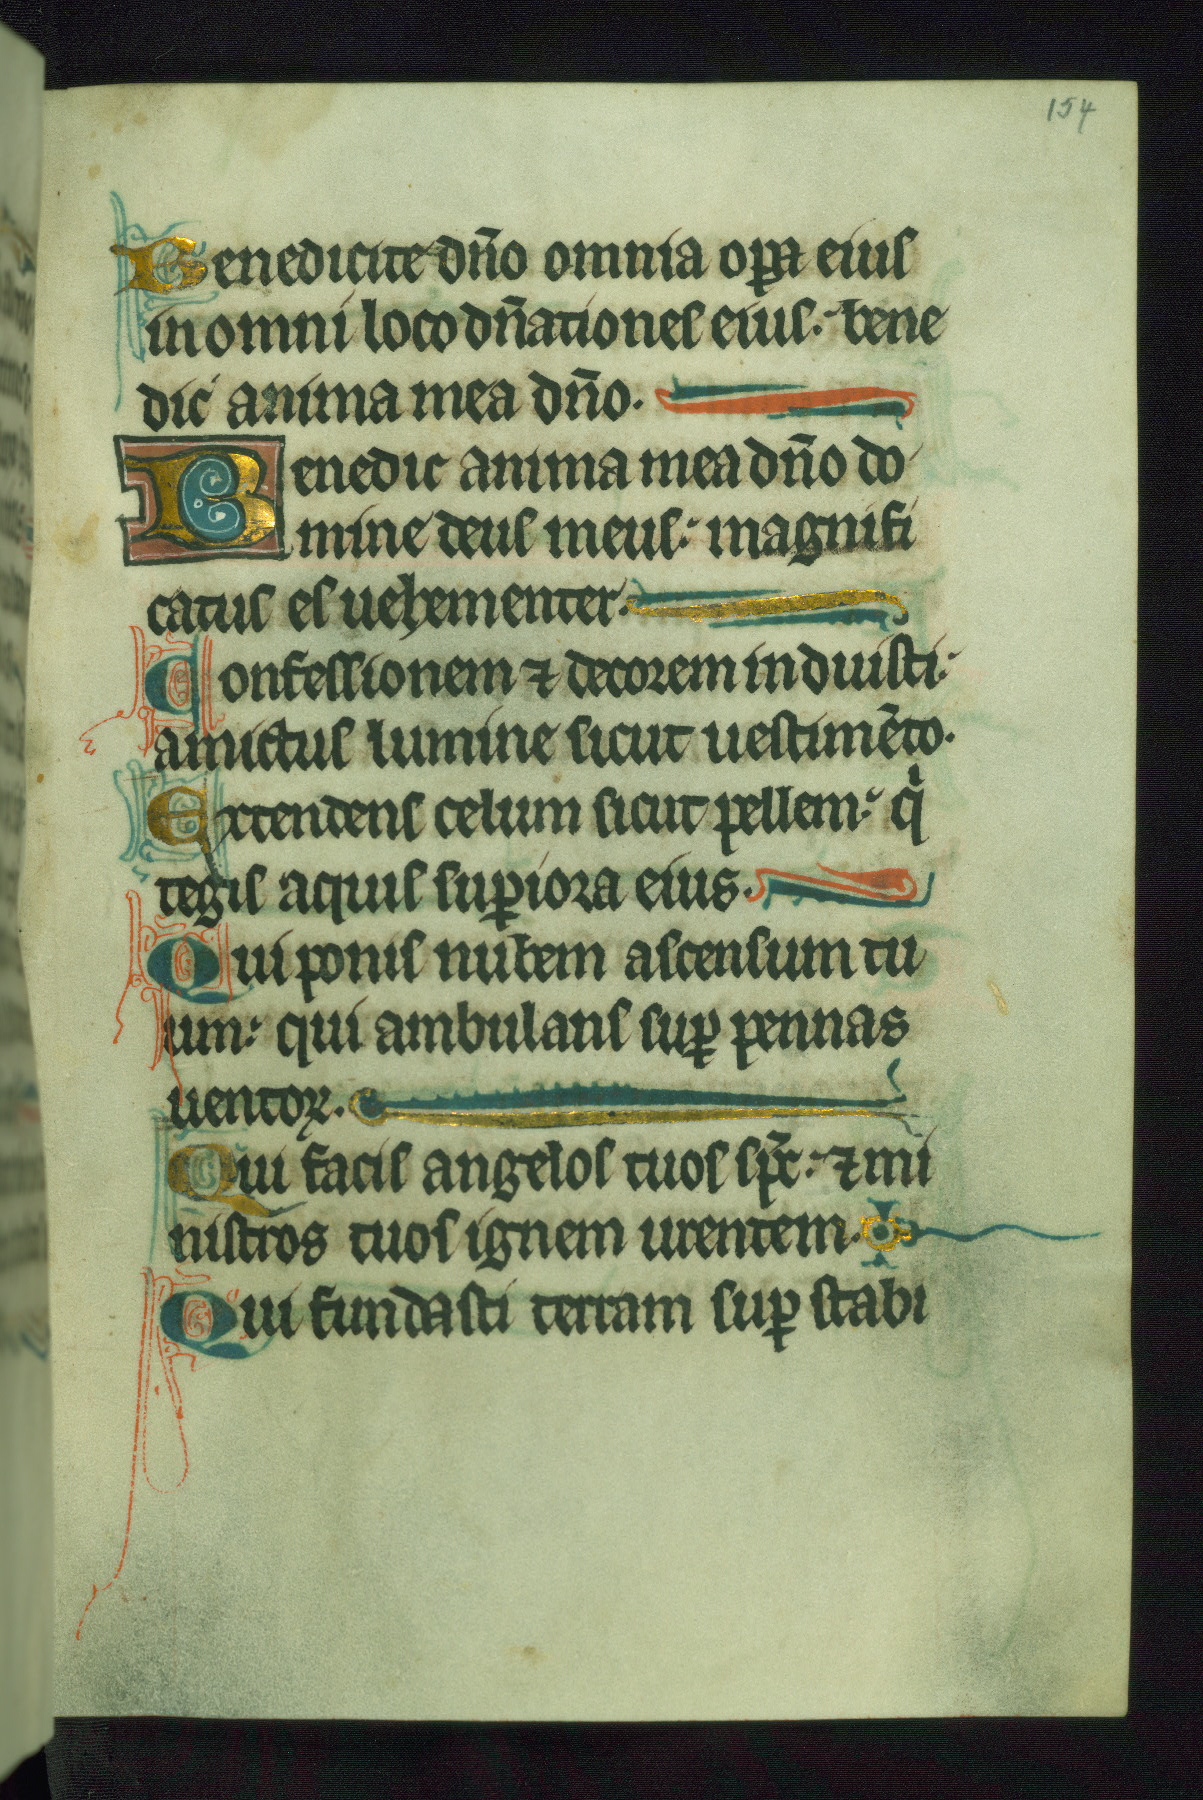 154
Benedicite dño omnia oꝑa eius
in omni loco dñationes eius. bene
dic anima mea dño.
Benedic anima mea dño do
mine deus meus: magnifi
catus es uehementer.
Confessionem ⁊ decorem induisti.
amictus lumine sicut uestimēto.
Extendens celum sicut pellem: qͥ
tegis aquis suꝑiora eius.
Qui ponis nubem ascensum tu
um: qui ambulans suꝑ pennas
uentoꝝ.
Qui facis angelos tuos sp̄c: ⁊ mi
nistros tuos ignem urentem.
Qui fundasti terram suꝑ stabi